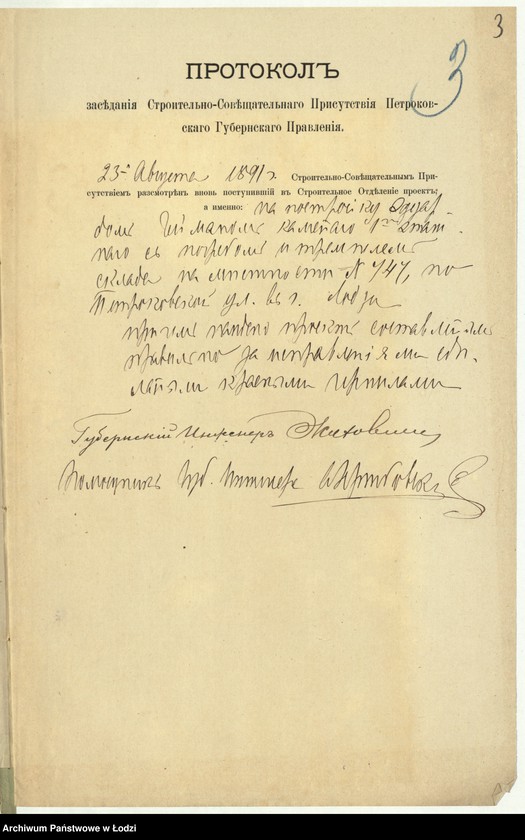 3
3
ПРОТОКОЛЪ
засѣданія Строительно-Совѣщательнаго Присутствія Петроков-
скаго Губернскаго Правленія.
23го Августа 1891 г. Строительно-Совѣщательнымъ При-
сутствіемъ разсмотрѣнъ вновь поступившій въ Строительное Отдѣленіе проектъ;
а именно: на постройку Эдуар-
домъ каменаго 1но этаж-
наго съ погребомъ и
склада на мѣстности № 747, по
Петроковской ул. въ г. Лодзи
при чемъ найдено проектъ составленнымъ
правильно за исправленіями сдѣ-
лаными красными чернилами
Губернскій Инженеръ
Помощникъ Губ. Инженера
Archiwum Państwowe w Łodzi